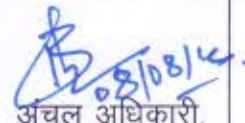 08/08/14.
अंचल अधिकारी,